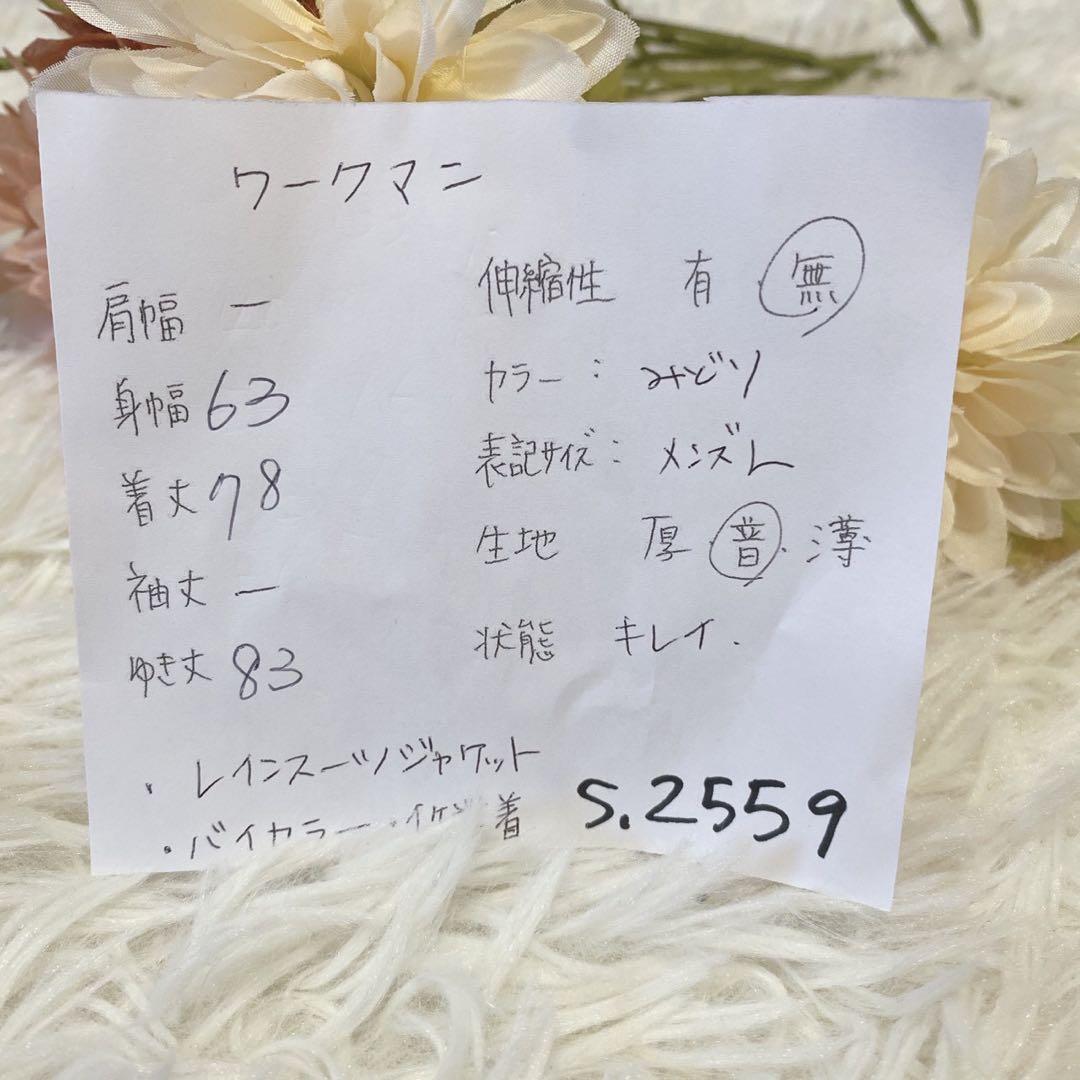 ワークマン
肩幅 ー
身幅 63
着丈 78
袖丈 ー
ゆき丈 83
伸縮性 有 無
カラー：みどり
表記サイズ：メンズL
生地 厚・普・薄
状態 キレイ.
・レインスーツジャケット
・バイカラー・ 着
S.2559